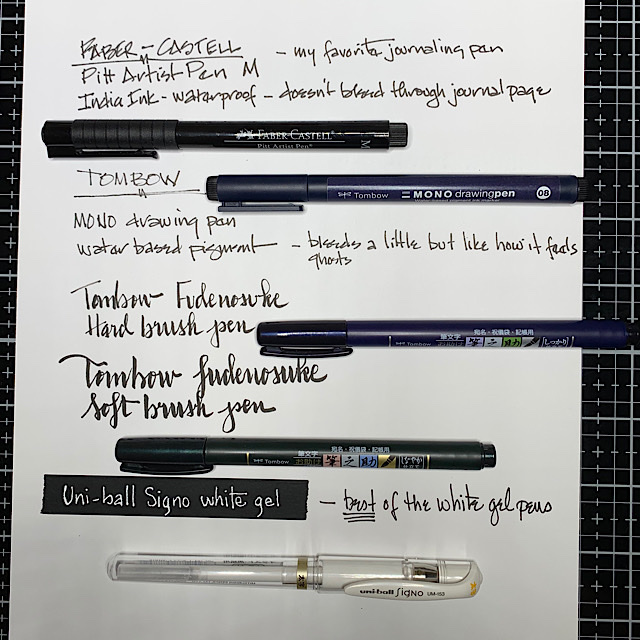 FABER-CASTELL - my favorite journaling pen
Pitt Artist Pen M
India Ink - waterproof - doesn't bleed through journal page
FABER-CASTELL
Pitt Artist Pen® M
TOMBOW
Tombow MONO drawingpen 08
MONO drawing pen
water based pigment - bleeds a little but like how it feels
ghosts
Tombow Fudenosuke
Hard brush pen
筆文字 宛名・祝儀袋・記帳用
Tombow お助け 筆之助 しっかり
Tombow fudenosuke
Soft brush pen
筆文字 宛名・祝儀袋・記帳用
Tombow お助け 筆之助 しなやか
Uni-ball Signo white gel - best of the white gel pens
uni-ball Signo UM-153